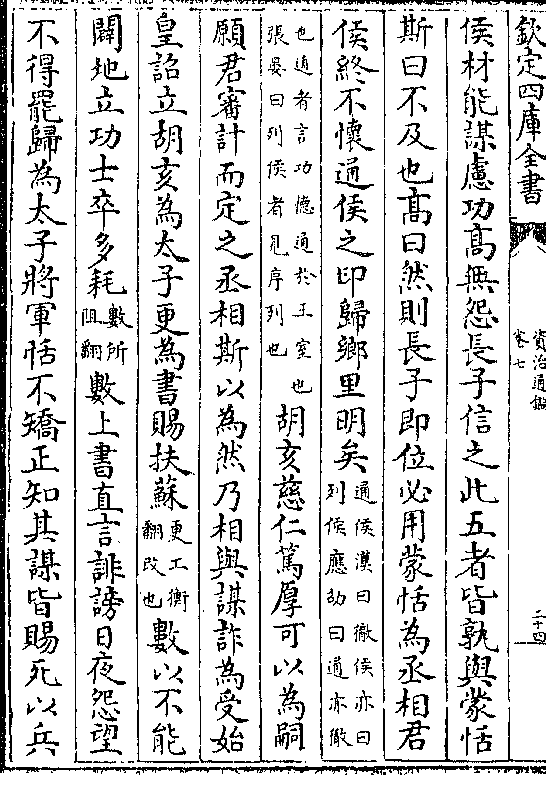 欽定四庫全書
資治通鑑
卷七
二十四
侯材能謀慮功髙無怨長子信之此五者皆孰與蒙恬
斯曰不及也髙曰然則長子即位必用蒙恬為丞相君
侯終不懷通侯之印歸鄉里明矣通侯漢曰徹侯亦曰
列侯應劭曰通亦徹
也通者言功徳通於王室也
張晏曰列侯者見序列也
胡亥慈仁篤厚可以為嗣
願君審計而定之丞相斯以為然乃相與謀詐為受始
皇詔立胡亥為太子更為書賜扶蘇更工衡
翻改也
數以不能
闢地立功士卒多耗數所
阻翻
數上書直言誹謗日夜怨望
不得罷歸為太子將軍恬不矯正知其謀皆賜死以兵